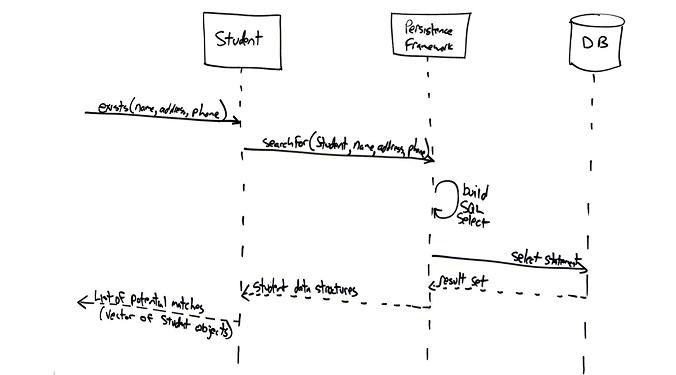 Student
Persistence
Framework
DB
exists(name, address, phone)
searchfor(Student, name, address, phone)
build
SQL
Select
select statement
result set
student data structures
List of potential matches
(vector of Student objects)